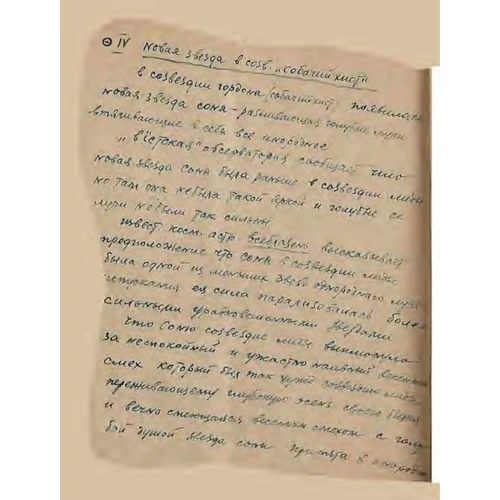 IV Новая звезда в созв. "Собачий хист"
в созвездии гордона (собачий хист) появилась
новая звезда соня - разливающая голубые лучи
втягивающие в себя все инородное
"в'етская" обсерватория сообщает что
новая звезда соня была раньше в созвездии
но там она не была такой яркой и голубые ее
лучи не были так сильны
извест. косм. астр. всебразень высказывает
предположение что соня в созвездии
была одной из меньших звезд однороднаго
и ея сила парализовалась более
сильными уравновешенными звездами
что Соню созвездие
за неспокойный и ужастно наивный веселый
смех который был так чужд созвездию
переживающему глубокую осень своего
и вечно смеющаяся веселым смехом с голу
бой душой звезда соня принята в